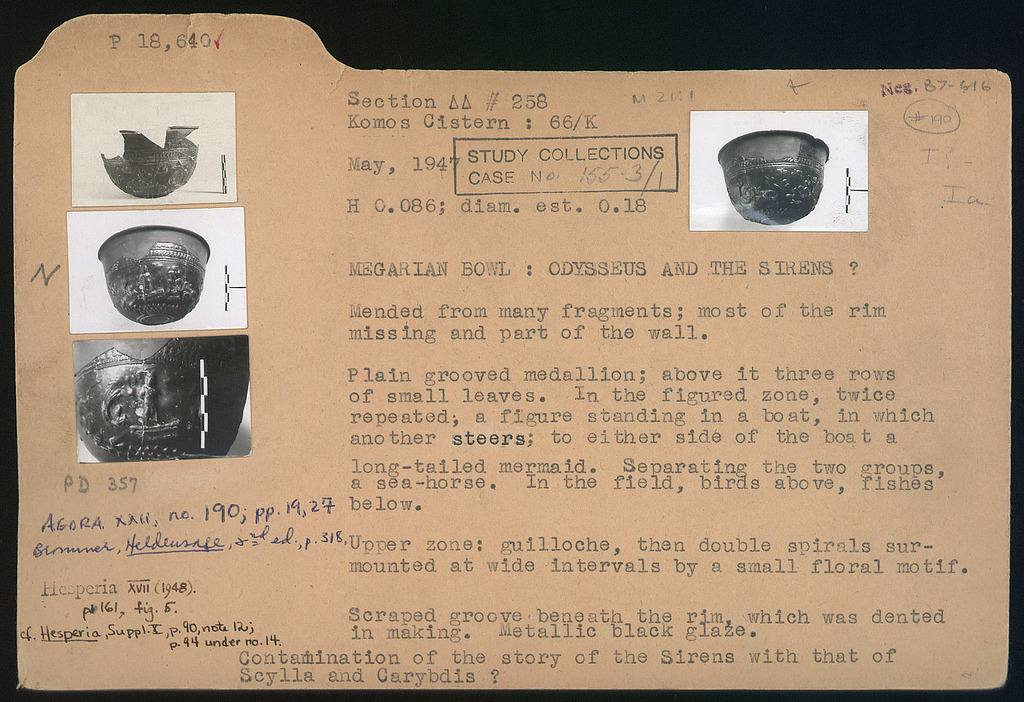 P 18,640✓
Section ΔΔ # 258
M 20:1
Neg. 87-516
Komos Cistern : 66/K
#190
May, 1947
STUDY COLLECTIONS
CASE No. 155-3/1
I?-
Ia
H 0.086; diam. est. 0.18
N
MEGARIAN BOWL : ODYSSEUS AND THE SIRENS ?
Mended from many fragments; most of the rim
missing and part of the wall.
Plain grooved medallion; above it three rows
of small leaves. In the figured zone, twice
repeated, a figure standing in a boat, in which
another steers; to either side of the boat a
long-tailed mermaid. Separating the two groups,
a sea-horse. In the field, birds above, fishes
below.
PD 357
AGORA XXII, no. 190; pp. 19, 27
Brommer, Heldensage, 2nd ed., p. 318.
Upper zone: guilloche, then double spirals sur-
mounted at wide intervals by a small floral motif.
Hesperia XVII (1948).
p 161, fig. 5.
cf. Hesperia, Suppl. X, p. 90, note 12;
p. 94 under no. 14.
Scraped groove beneath the rim, which was dented
in making. Metallic black glaze.
Contamination of the story of the Sirens with that of
Scylla and Carybdis ?